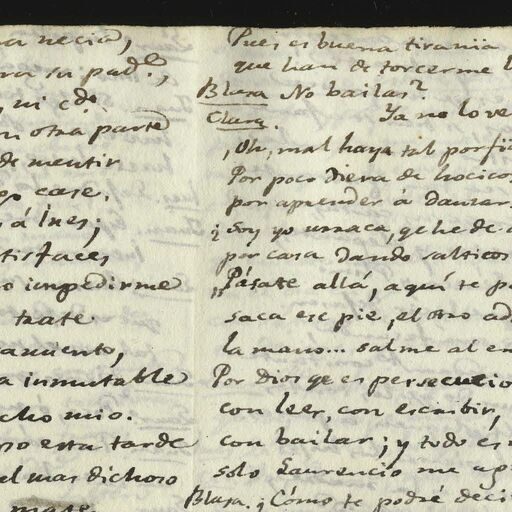 na necia,
ra su pad.e,
ni cdo.
n otra parte
de mentir
go case.
s á Ines;
tisfaces
o impedirme
trate.
amiento,
a inmutable
cho mio.
so esta tarde
el mas dichoso
Pues es buena tirania
que han de torcerme l
Blasa No bailas?
Clara. Ya no lo ve
¡Oh, mal haya tal porfi
Por poco diera de hocicos
por aprender á danzar.
¿Soy yo urraca, qe he de a
por casa dando salticos
"Pásate allá, aquí te p
saca ese pie, el otro ad
la mano... salme al en
Por Dios qe es persecucio
con leer, con escribir,
con bailar; y todo es
solo Laurencio me ag
Blasa. ¿Cómo te podré deci